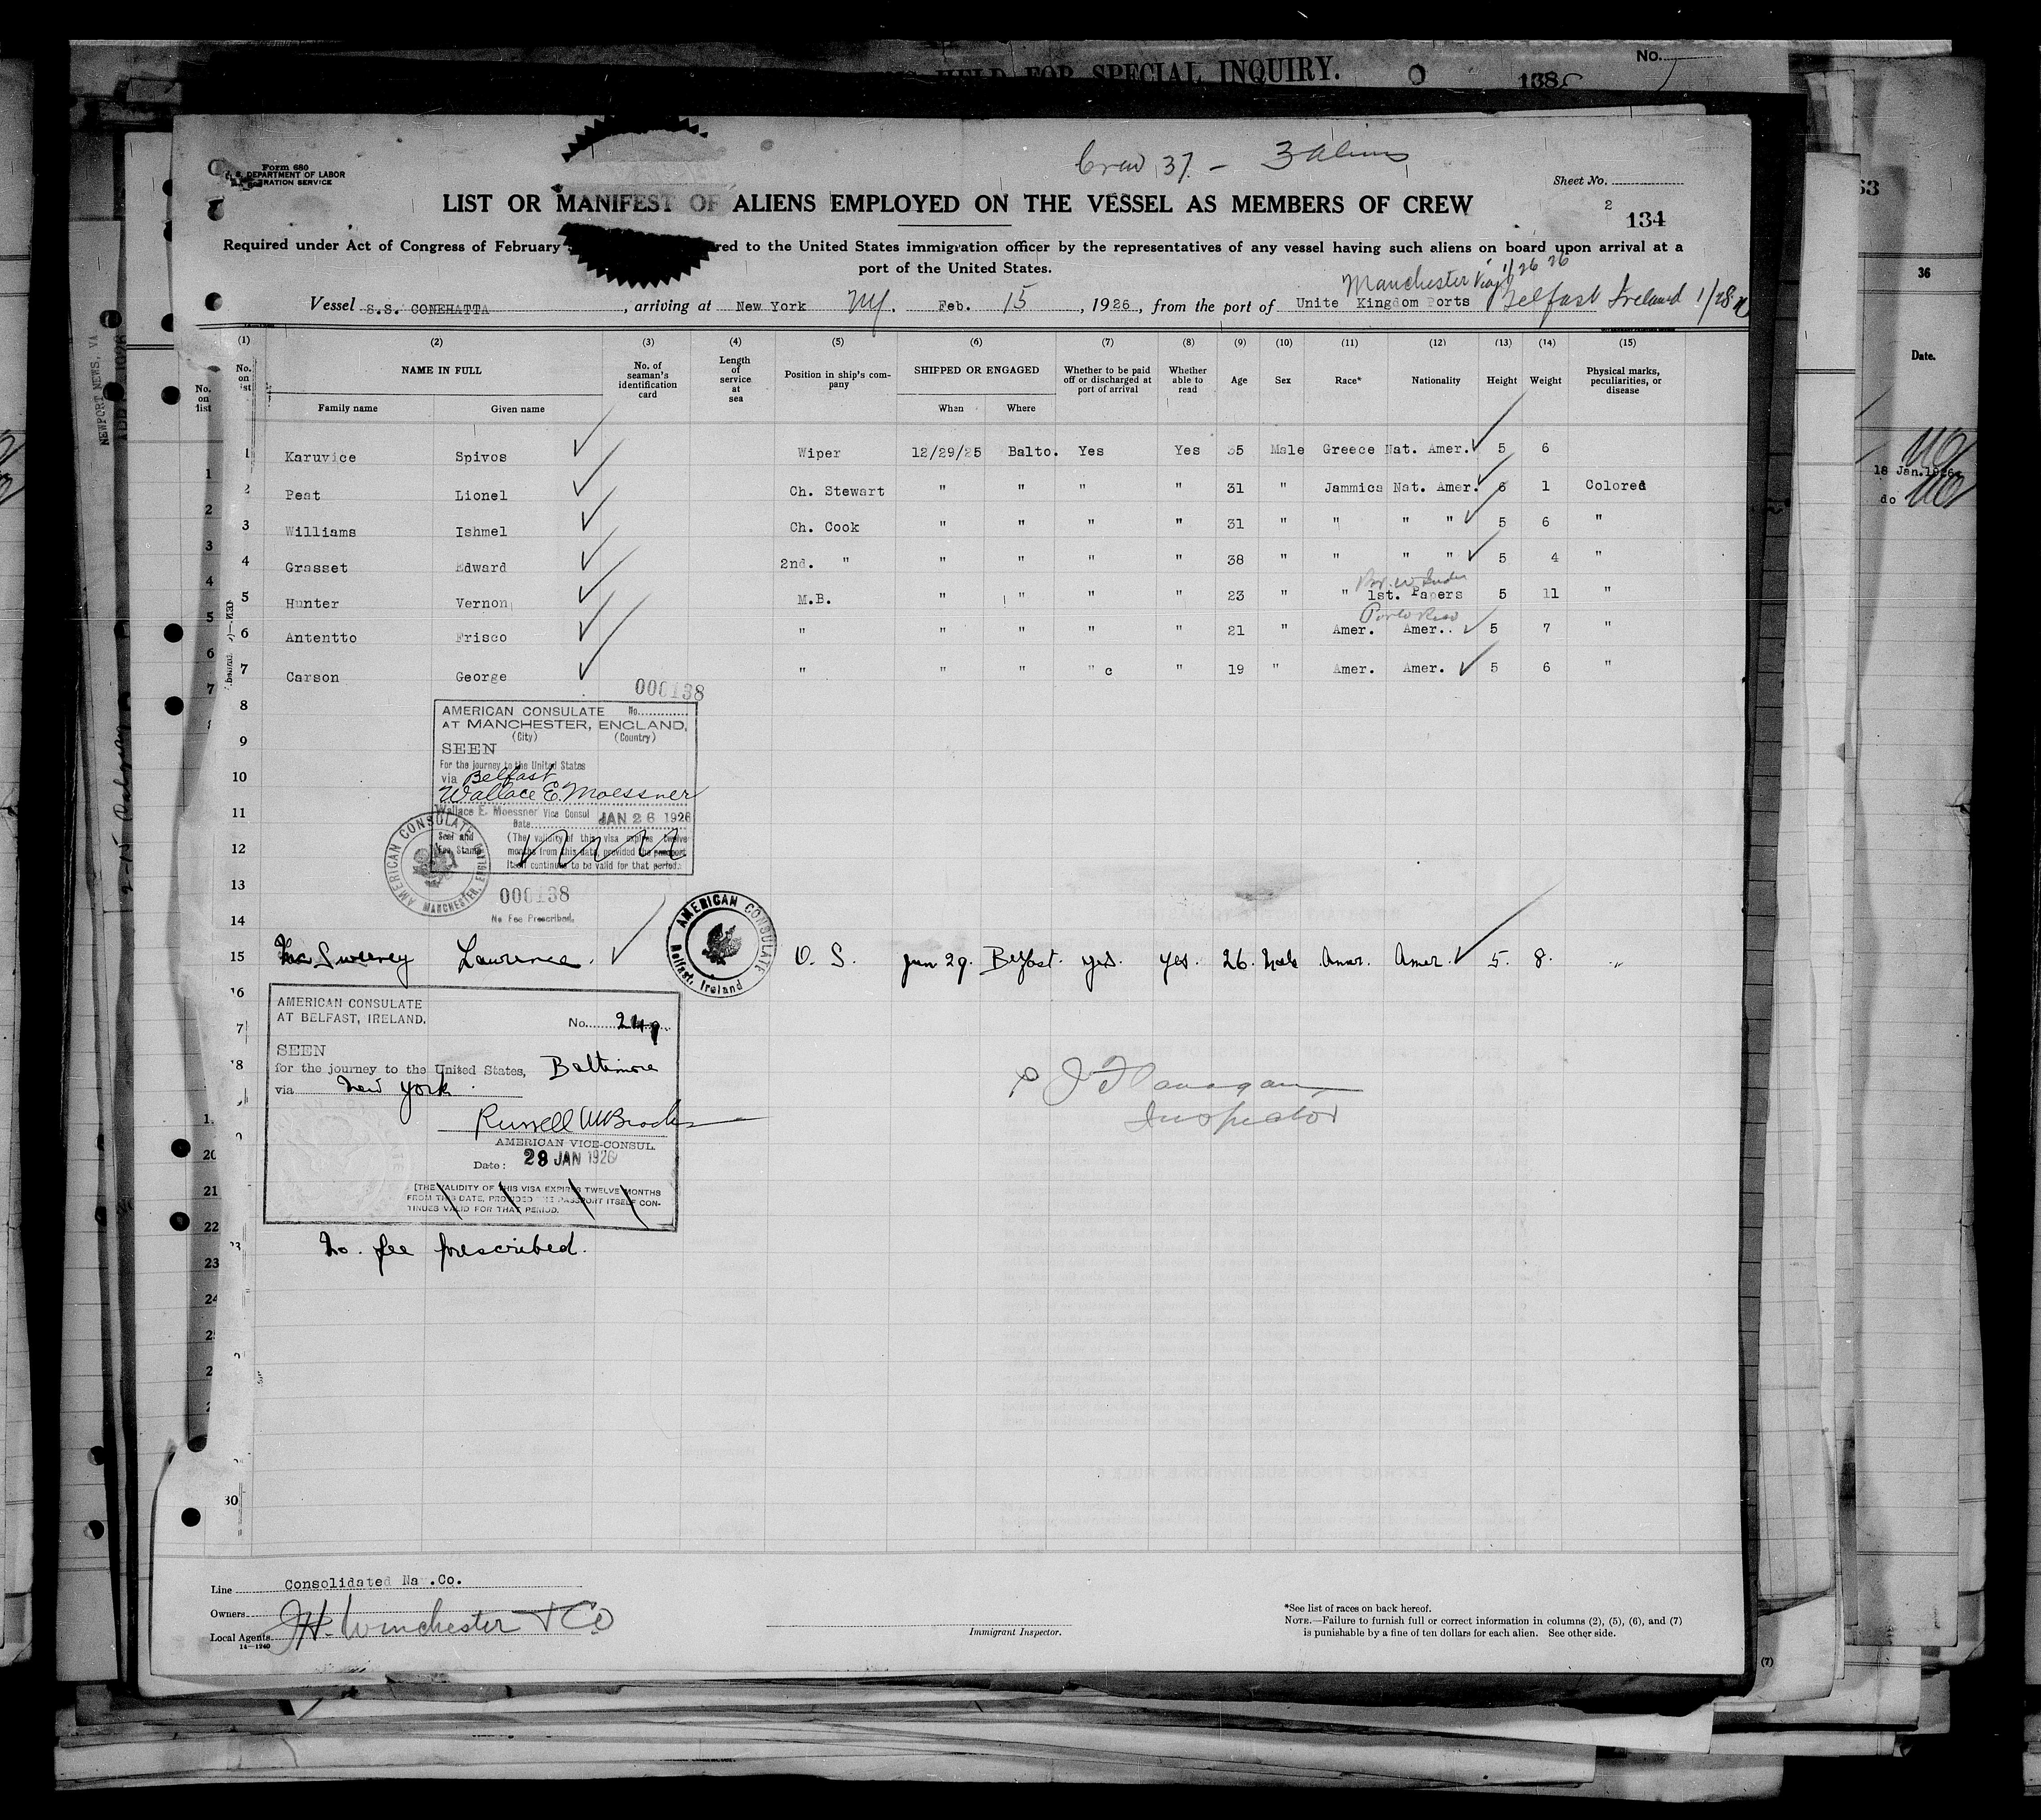 HELD FOR SPECIAL INQUIRY.
No.
138
Crew 37 - 3 aliens
Form 680
U. S. DEPARTMENT OF LABOR
IMMIGRATION SERVICE
Sheet No.
LIST OR MANIFEST OF ALIENS EMPLOYED ON THE VESSEL AS MEMBERS OF CREW
2
134
Required under Act of Congress of February red to the United States immigration officer by the representatives of any vessel having such aliens on board upon arrival at a
port of the United States.
Manchester 1/26 26
Vessel S.S. CONEHATTA, arriving at New York NY. Feb. 15, 1926, from the port of Unite Kingdom Ports Belfast Ireland 1/28
(1) (2) (3) (4) (5) (6) (7) (8) (9) (10) (11) (12) (13) (14) (15)
No. on list NAME IN FULL No. of seaman's identification card Length of service at sea Position in ship's company SHIPPED OR ENGAGED Whether to be paid off or discharged at port of arrival Whether able to read Age Sex Race* Nationality Height Weight Physical marks, peculiarities, or disease
Family name Given name When Where
1 Karuvice Spivos Wiper 12/29/25 Balto. Yes Yes 35 Male Greece Nat. Amer. 5 6
2 Peat Lionel Ch. Stewart " " " " 31 " Jammica Nat. Amer. 6 1 Colored
3 Williams Ishmel Ch. Cook " " " " 31 " " " " 5 6 "
4 Grasset Edward 2nd. " " " " " 38 " " " " 5 4 "
Br. W. Indies
5 Hunter Vernon M.B. " " " " 23 " " 1st. Papers 5 11 "
Porto Rico
6 Antentto Frisco " " " " " 21 " Amer. Amer.. 5 7 "
7 Carson George " " " " c " 19 " Amer. Amer. 5 6 "
000138
8
AMERICAN CONSULATE No.
AT MANCHESTER, ENGLAND,
(City) (Country)
9
SEEN
For the journey to the United States
10
via Belfast
Wallace E. Moessner
11
Wallace E. Moessner Vice Consul
Date JAN 26 1926
Seal and Fee Stamp
(The validity of this visa expires twelve
12
months from this date, provided the passport
itself continues to be valid for that period.
AMERICAN CONSULATE MANCHESTER, ENGLAND
13
000138
No Fee Prescribed.
14
AMERICAN CONSULATE
Belfast, Ireland
15 McSweeney Lawrence. O. S. Jan 29. Belfast. yes. yes. 26. Male Amer. Amer. 5. 8. "
16
AMERICAN CONSULATE
AT BELFAST, IRELAND.
No. 249
SEEN
for the journey to the United States, Baltimore
via New York
P J Flanagan
Inspector
Russell M Brooks
AMERICAN VICE-CONSUL.
Date: 29 JAN 1926
[THE VALIDITY OF THIS VISA EXPIRES TWELVE MONTHS
FROM THIS DATE, PROVIDED THE PASSPORT ITSELF CON-
TINUES VALID FOR THAT PERIOD.
20
21
22
No. fee prescribed.
23
24
30
Line Consolidated Na .Co.
Owners
Local Agents J.H. Winchester & Co
14—1240
Immigrant Inspector.
*See list of races on back hereof.
NOTE.—Failure to furnish full or correct information in columns (2), (5), (6), and (7)
is punishable by a fine of ten dollars for each alien. See other side.
(7)
NEWPORT NEWS, VA
53
36
Date.
18 Jan.1926
do